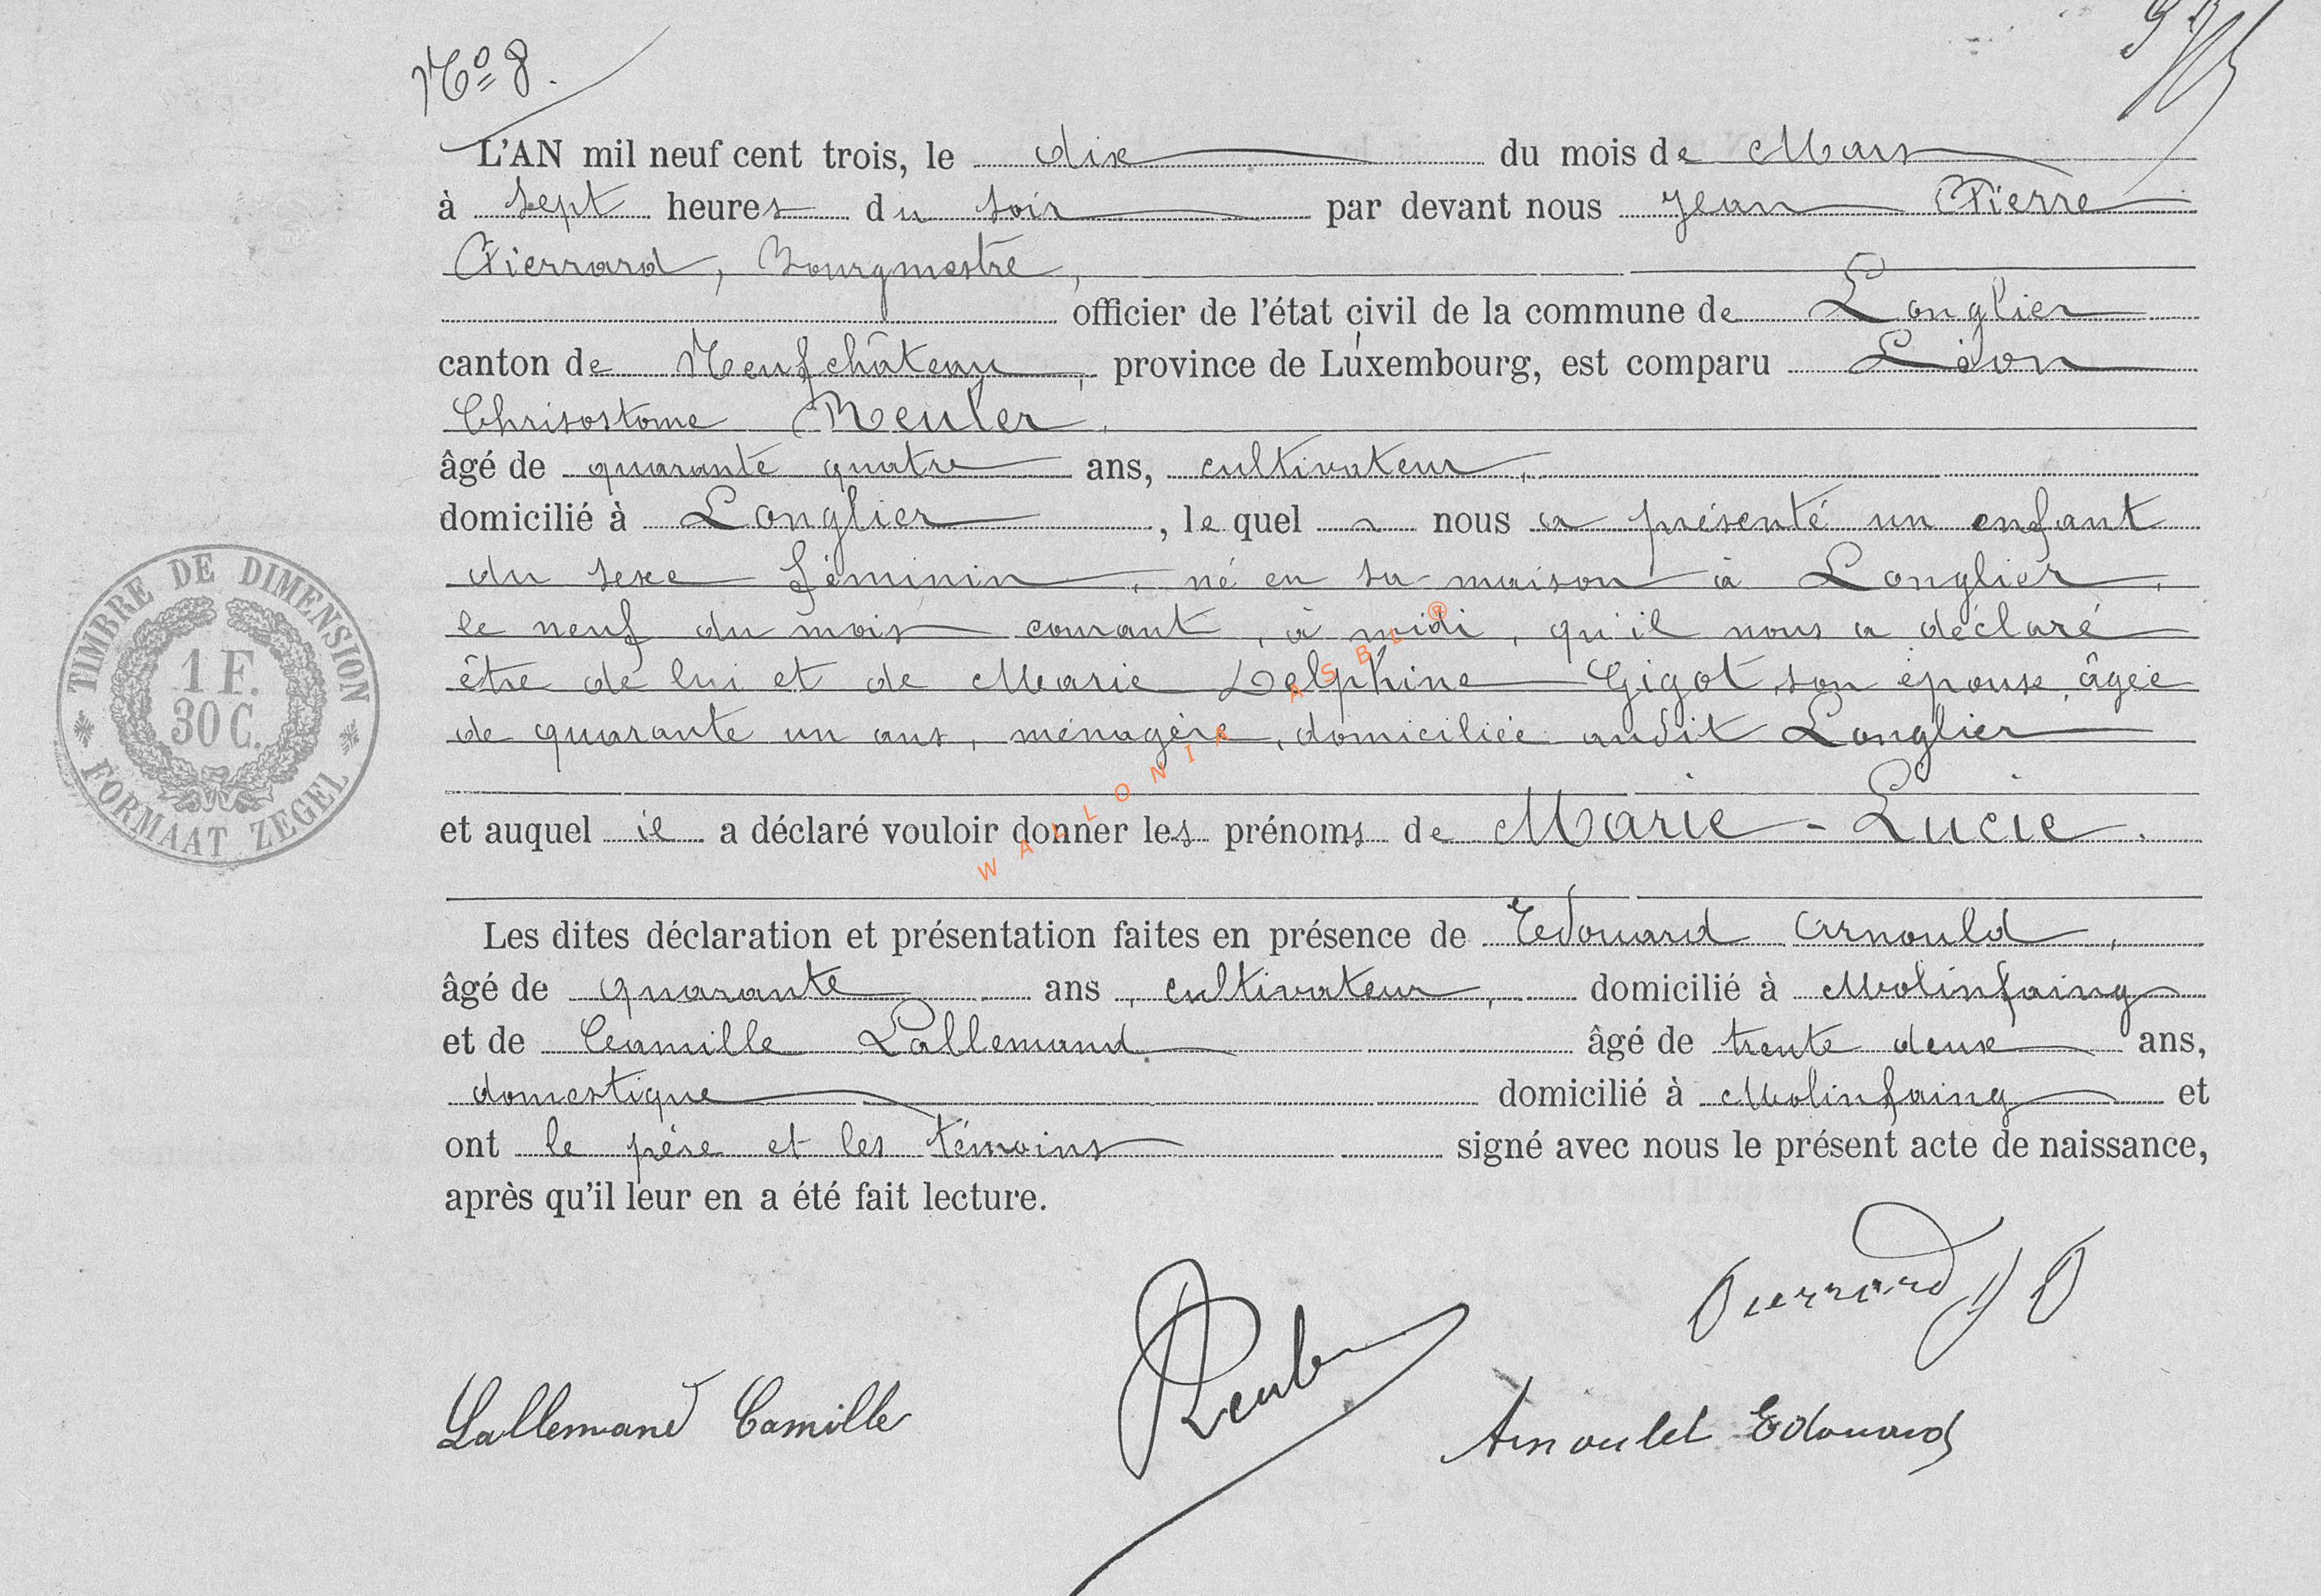 Nº 8.
L'AN mil neuf cent trois, le dix du mois de Mars
à sept heures du soir par devant nous Jean Pierre
Pierrard, Bourgmestre,
officier de l'état civil de la commune de Longlier
canton de Neufchâteau, province de Luxembourg, est comparu Léon
Chrisostome Reuler,
âgé de quarante quatre ans, cultivateur,
domicilié à Longlier, lequel nous a présenté un enfant
du sexe féminin, né en sa maison à Longlier,
le neuf du mois courant, à midi, qu'il nous a déclaré
être de lui et de Marie Delphine Gigot, son épouse, âgée
de quarante un ans, ménagère, domiciliée audit Longlier
et auquel il a déclaré vouloir donner les prénoms de Marie-Lucie.
Les dites déclaration et présentation faites en présence de Edouard Arnould,
âgé de quarante ans, cultivateur, domicilié à Molinfaing
et de Camille Lallemand. âgé de trente deux ans,
domestique domicilié à Molinfaing et
ont le père et les témoins signé avec nous le présent acte de naissance,
après qu'il leur en a été fait lecture.
Pierrard JP
Lallemand Camille
Reuler
Arnould Edouard
TIMBRE DE DIMENSION
1 F.
30 C.
FORMAAT ZEGEL
WALLONIA ASBL ®